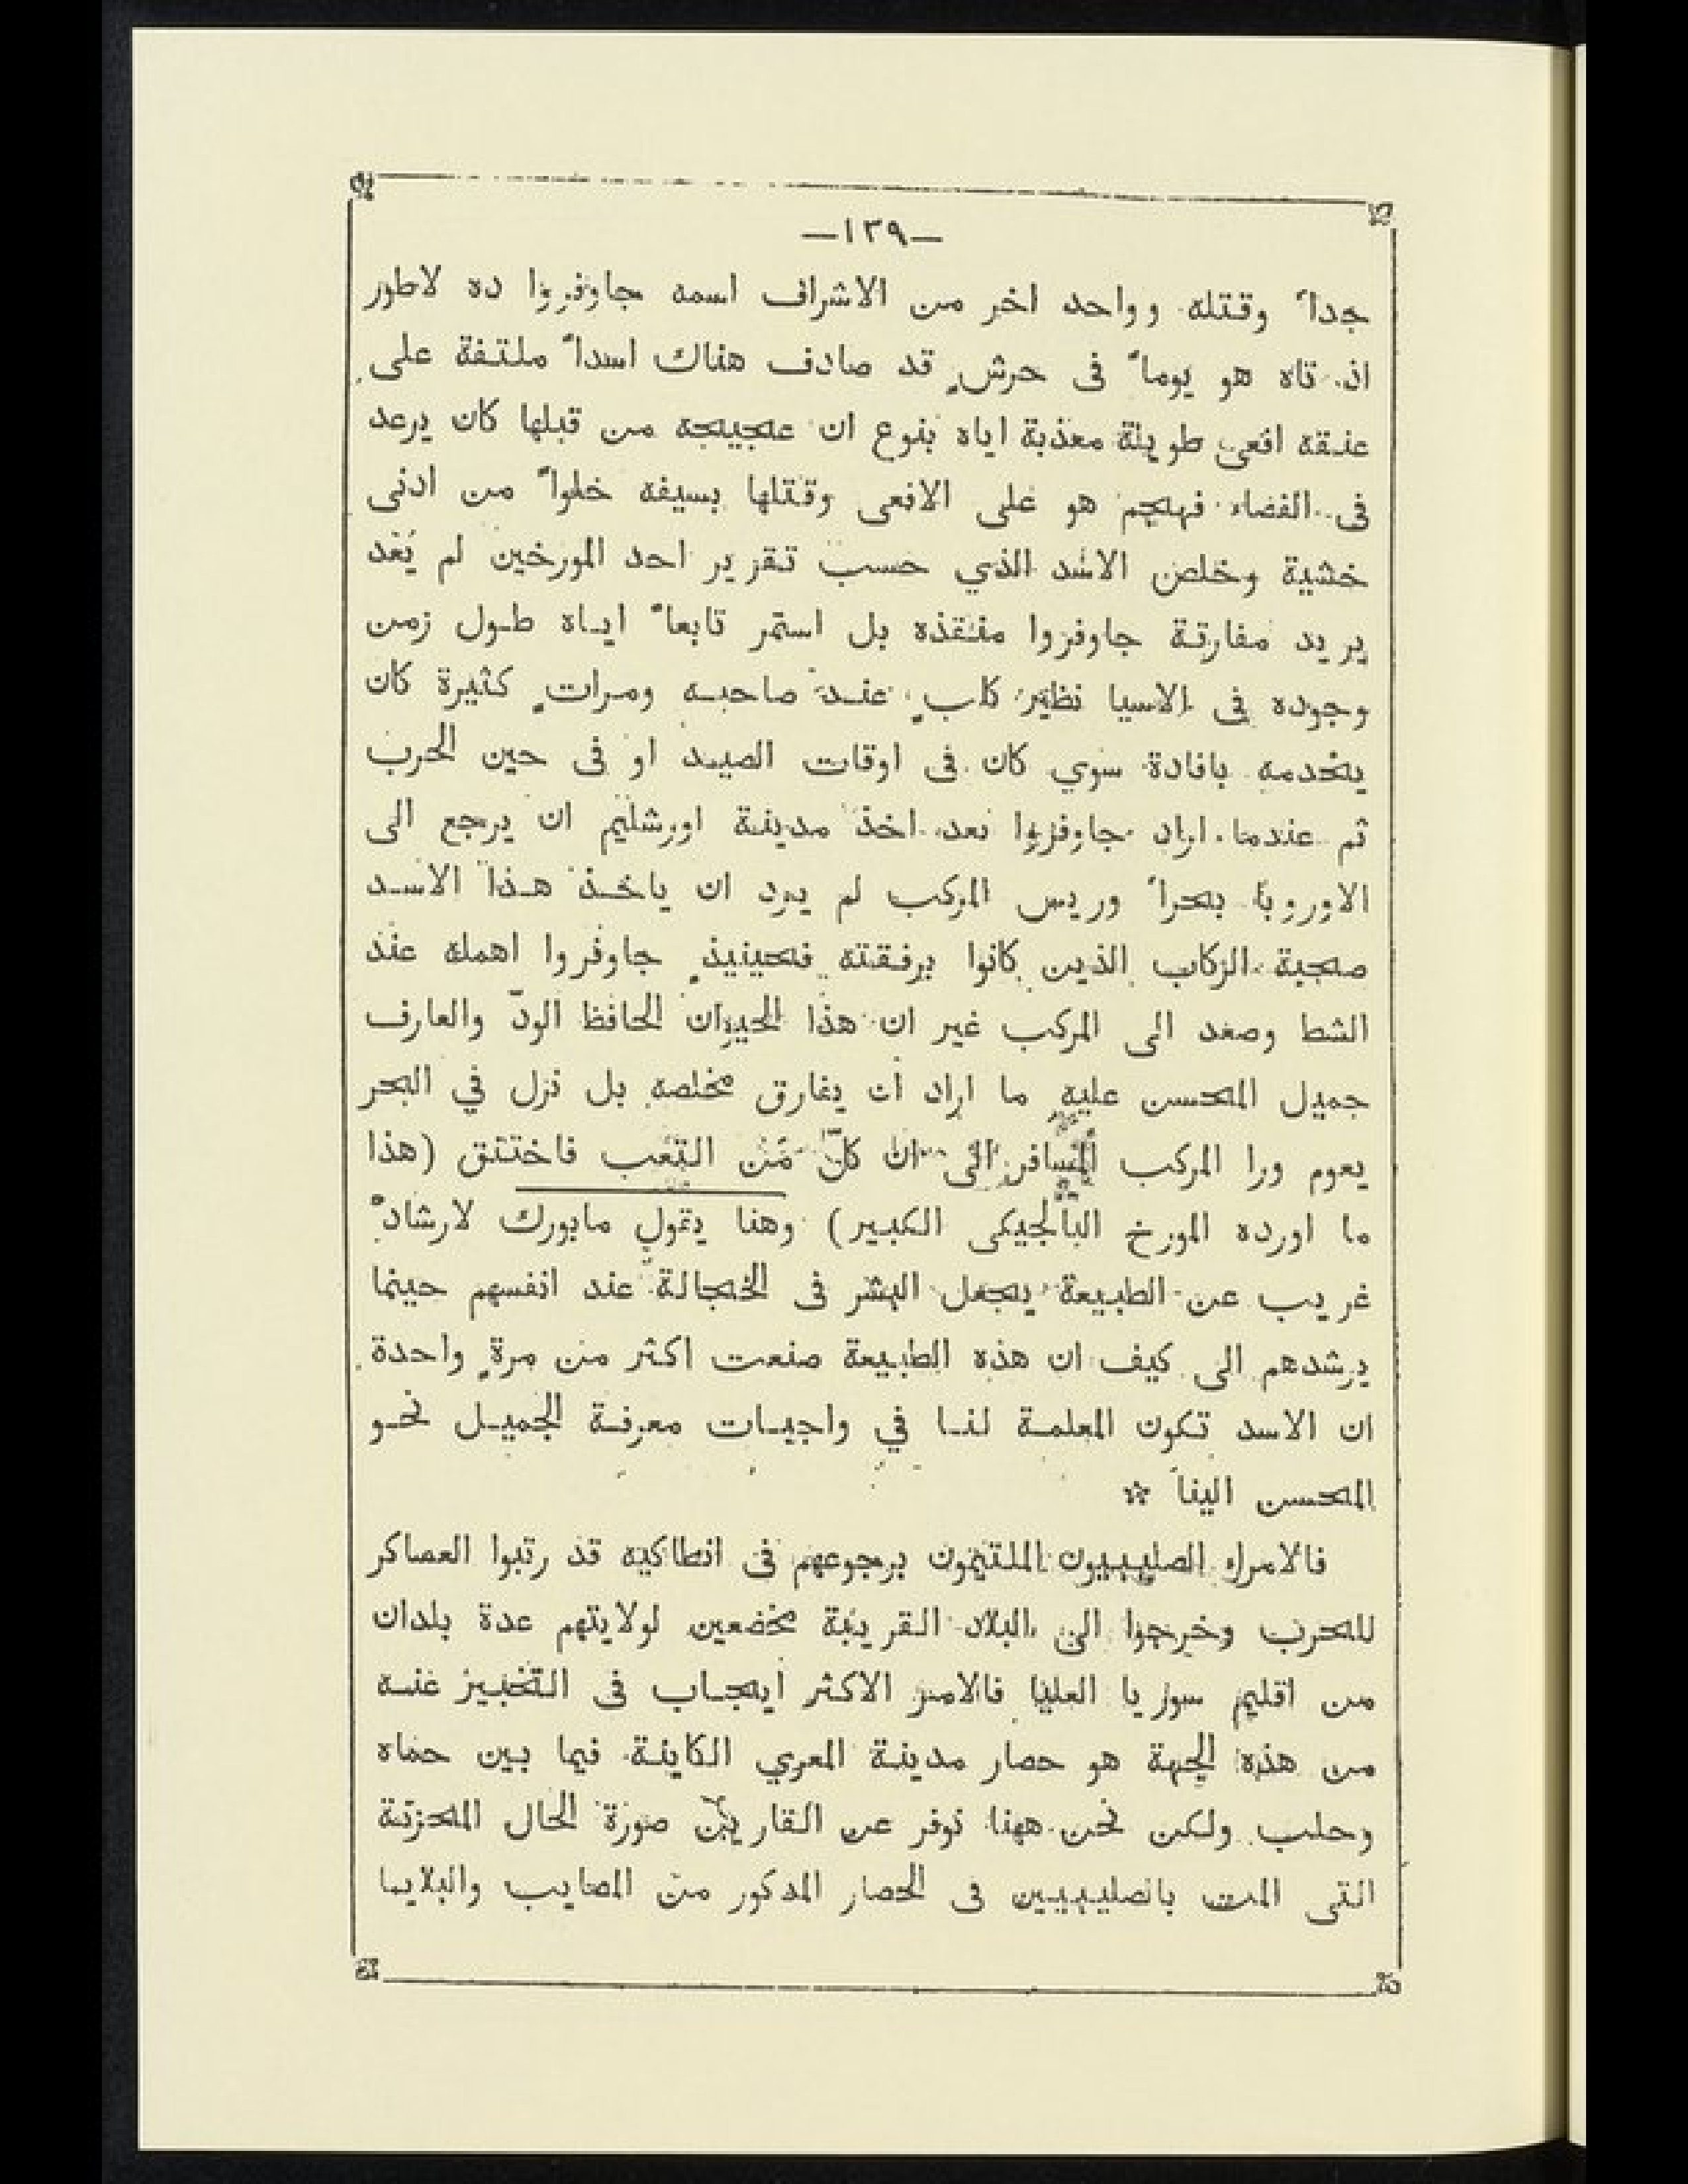 —١٣٩—
جداً وقتله وواحد اخر من الاشراف اسمه جاوفروا ده لاطور
اذ تاه هو يوماً فى حرشٍ قد صادف هناك اسداً ملتفة على
عنقه افعى طويلة معذبة اياه بنوع ان عجيجه من قبلها كان يرعد
فى الفضاء فهجم هو على الافعى وقتلها بسيفه خلواً من ادنى
خشية وخلص الاسد الذي حسب تقرير احد المورخين لم يعد
يريد مفارقة جاوفروا منقذه بل استمر تابعاً اياه طول زمن
وجوده فى الاسيا نظير كلبٍ عند صاحبه ومراتٍ كثيرة كان
يخدمه بافادة سوي كان فى اوقات الصيد او فى حين الحرب
ثم عندما اراد جاوفروا بعد اخذ مدينة اورشليم ان يرجع الى
الاوروبا بحراً وريس المركب لم يرد ان ياخذ هذا الاسد
صحبة الركاب الذين كانوا برفقته فحينيذٍ جاوفروا اهمله عند
الشط وصعد الى المركب غير ان هذا الحيوان الحافظ الودّ والعارف
جميل المحسن عليه ما اراد ان يفارق مخلصه بل نزل في البحر
يعوم ورا المركب المسافر الى ان كلّ من التعب فاختنق (هذا
ما اورده المورخ البالجيكى الكبير) وهنا يقول مابورك لارشادٌ
غريب عن الطبيعة يجعل البشر فى الخجالة عند انفسهم حينما
يرشدهم الى كيف ان هذه الطبيعة صنعت اكثر من مرةٍ واحدة
ان الاسد تكون المعلمة لنا في واجبات معرفة الجميل نحو
المحسن الينا *
فالامراء الصليبيون الملتيمون برجوعهم فى انطاكيه قد رتبوا العساكر
للحرب وخرجوا الى البلاد القريبة مخضعين لولايتهم عدة بلدان
من اقليم سوريا العليا فالامر الاكثر ايجاب فى التخبير عنه
من هذه الجهة هو حصار مدينة المعري الكاينة فيما بين حماه
وحلب ولكن نحن ههنا نوفر عن القاريين صورة الحال المحزنة
التى المت بالصليبيين فى الحصار المدكور من المصايب والبلايا